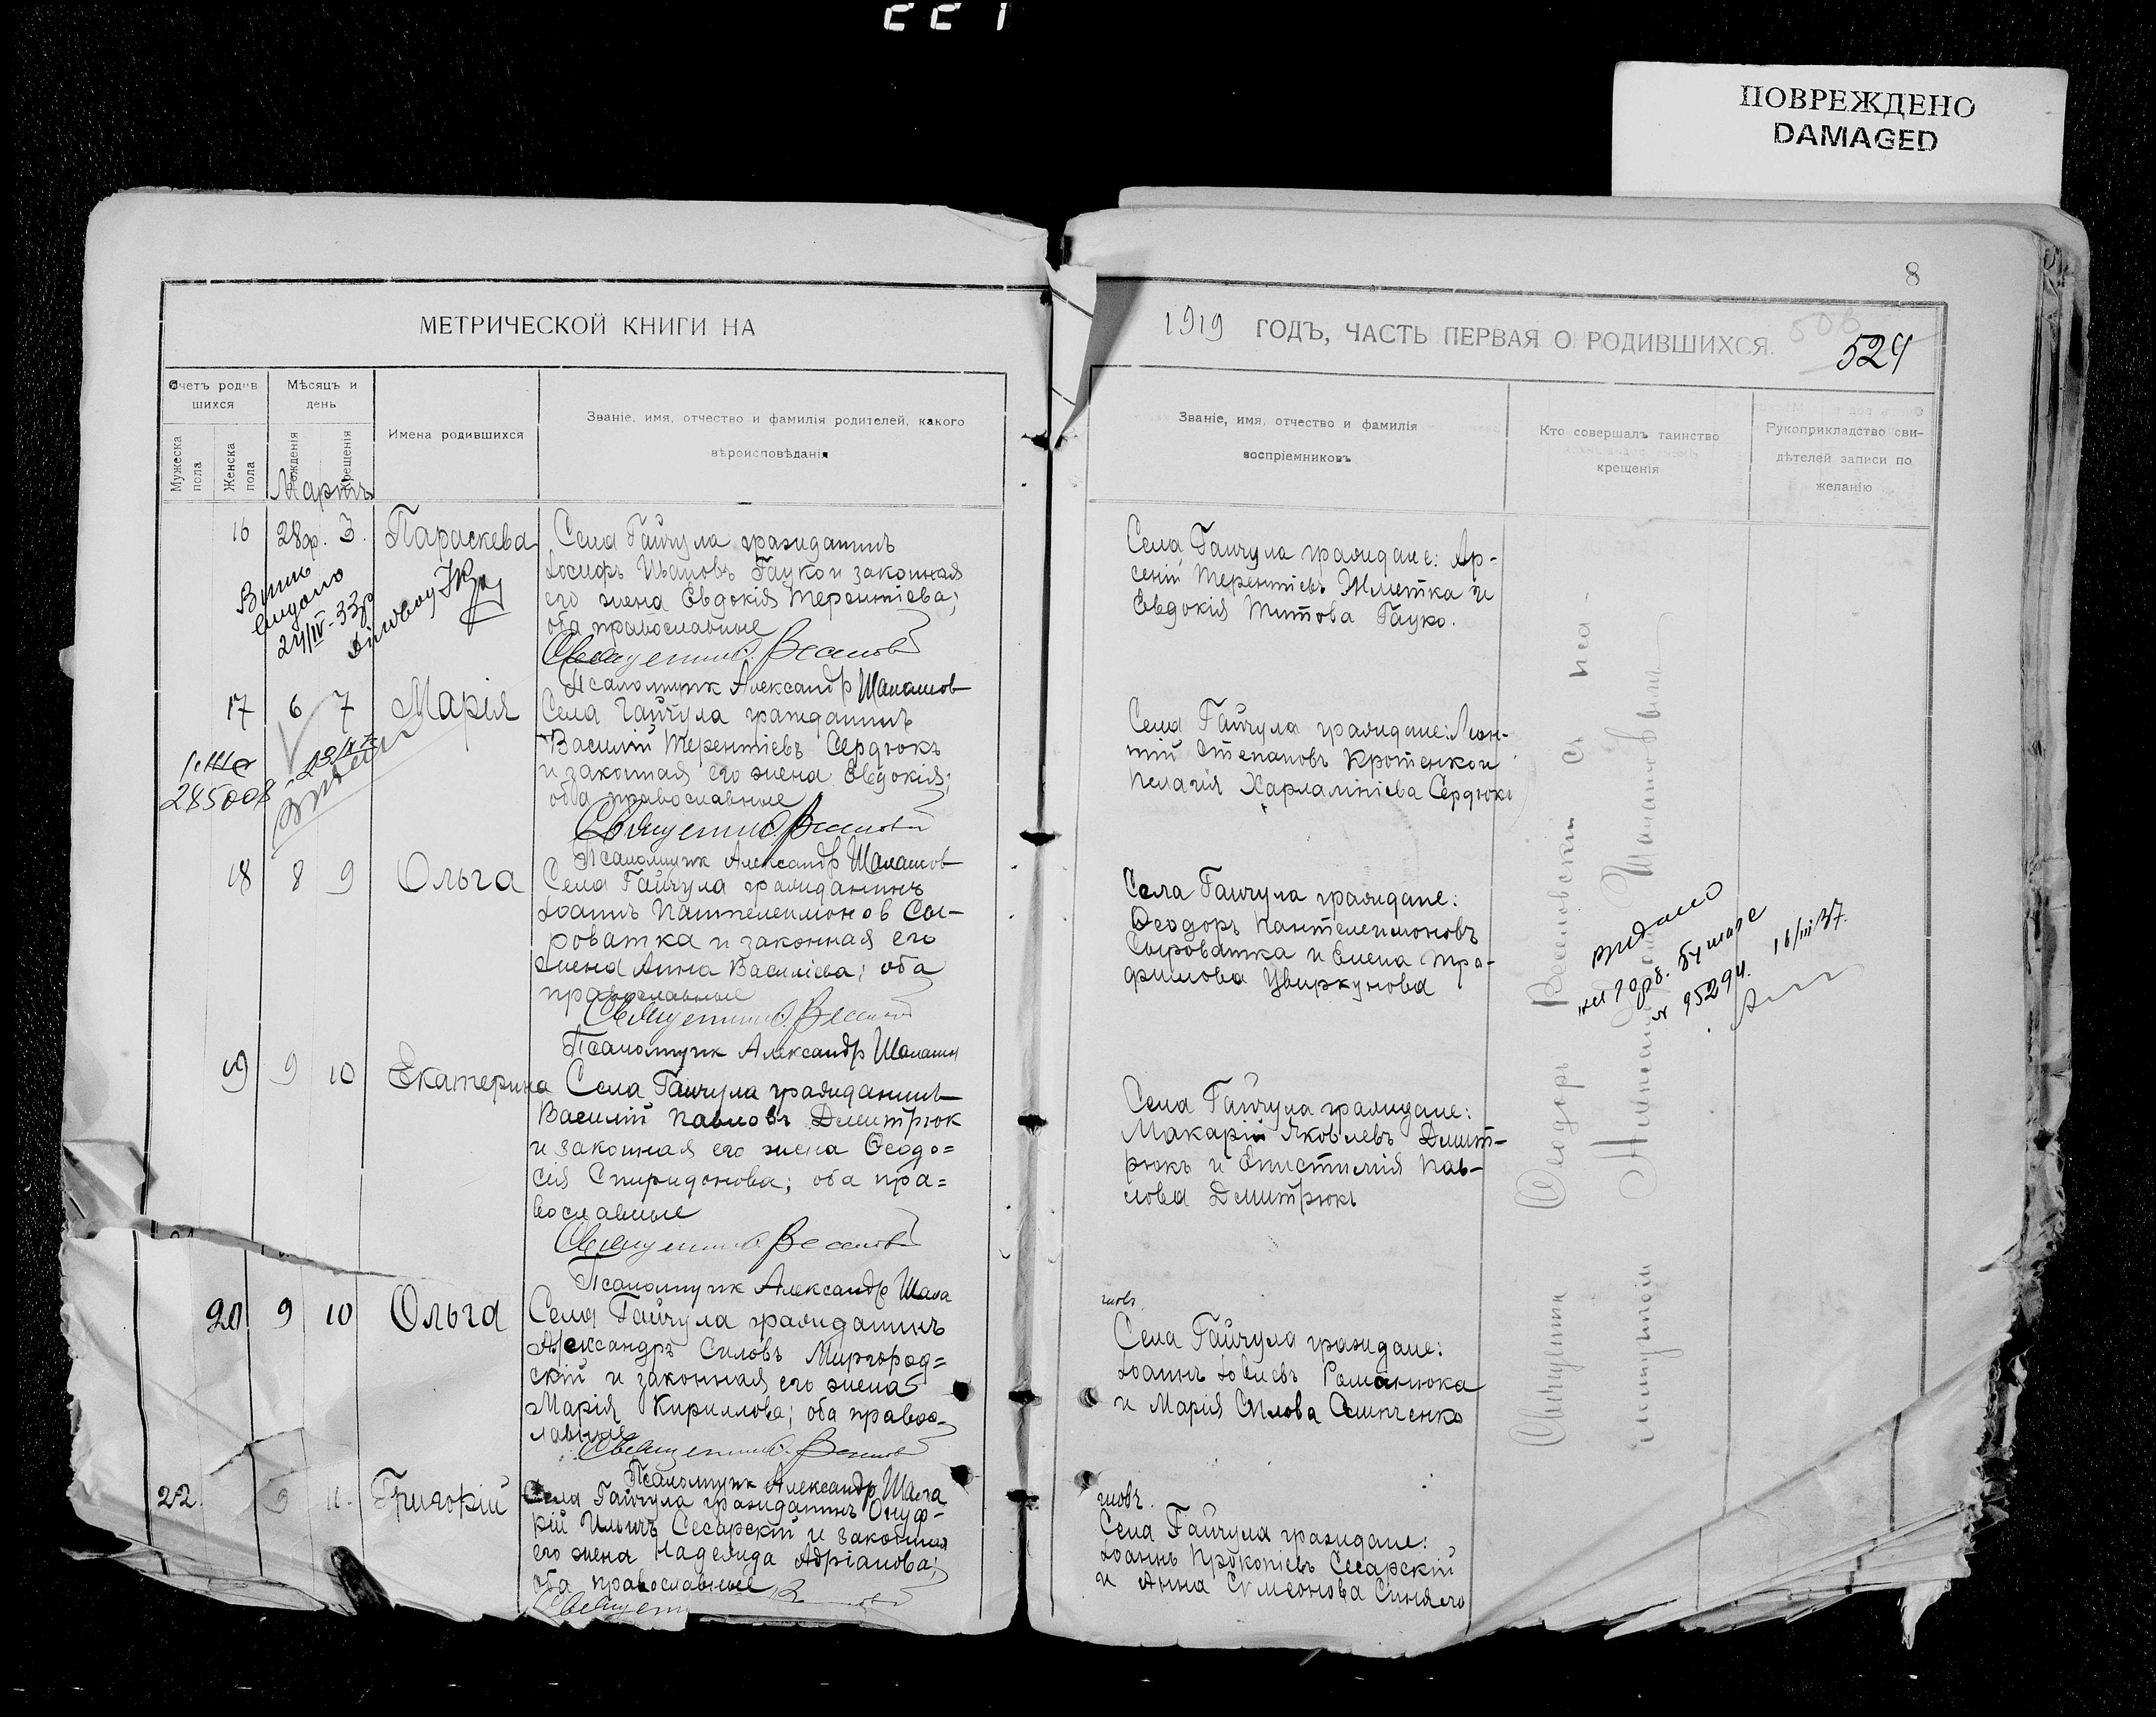 ПОВРЕЖДЕНО
DAMAGED
8
МЕТРИЧЕСКОЙ КНИГИ НА
1919 ГОДЪ, ЧАСТЬ ПЕРВАЯ О РОДИВШИХСЯ.
524
Счетъ родив
шихся
Мужеска пола
Женска пола
Мѣсяцъ и
день
рожденія
крещенія
Имена родившихся
Званіе, имя, отчество и фамилія родителей, какого
вѣроисповѣданія
Званіе, имя, отчество и фамилія
воспріемниковъ
Кто совершалъ таинство
крещенія
Рукоприкладство сви-
дѣтелей записи по
желанію
Мартъ
16 28ф. 3. Параскева
Села Гайчула гражданинъ
Іосифъ Ивановъ Гауко и законная
его жена Евдокія Терентіева;
оба православные
Священникъ Ѳ. Веселовскій
Псаломщик Александр Шалашов
Села Гайчула граждане: Ар-
сеній Терентіевъ Жметка и
Евдокія Титова Гауко.
24/IV-33р
17 6 7 Марія
Села Гайчула гражданинъ
Василій Терентіевъ Сердюкъ
и законная его жена Евдокія;
оба православные
Священникъ Ѳ. Веселовскій
Псаломщик Александр Шалашов
Села Гайчула граждане: Леон-
тій Степановъ Кротенко и
Пелагія Харлампіева Сердюкъ
285008
18 8 9 Ольга
Села Гайчула гражданинъ
Іоаннъ Пантелеимонов Сы-
роватка и законная его
жена Анна Василіева; оба
православные
Священникъ Ѳ. Веселовскій
Псаломщик Александр Шалашов
Села Гайчула граждане:
Ѳеодоръ Пантелеимоновъ
Сыроватка и Елена Тро-
фимова Цвиркунова
видано
95294. 16/III 37.
19 9 10 Екатерина
Села Гайчула гражданинъ
Василій Павловъ Дмитрюк
и законная его жена Ѳеодо=
сія Спиридонова; оба пра=
вославные
Священникъ Ѳ. Веселовскій
Псаломщик Александр Шала
Села Гайчула граждане:
Макарій Яковлевъ Дмит-
рюкъ и Епистимія Пав-
лова Дмитрюкъ
20 9 10 Ольга
Села Гайчула гражданинъ
Александръ Силовъ Миргород=
скій и законная его жена
Марія Кириллова; оба правос-
лавные
Священникъ Ѳ. Веселовскій
Псаломщик Александр Шала
шовъ.
Села Гайчула граждане:
Іоаннъ Іовлевъ Романюка
и Марія Силова
22. 9 11. Григорій
Села Гайчула гражданинъ Онуф-
рій Ильичъ Сесарскій и законная
его жена Надежда Адріанова;
оба православные
шовъ.
Села Гайчула граждане:
Іоаннъ Прокопіевъ Сесарскій
и Анна Симеонова Синяего
Священникъ Ѳеодоръ Веселовскій съ пса-
ломщикомъ Шалашовымъ